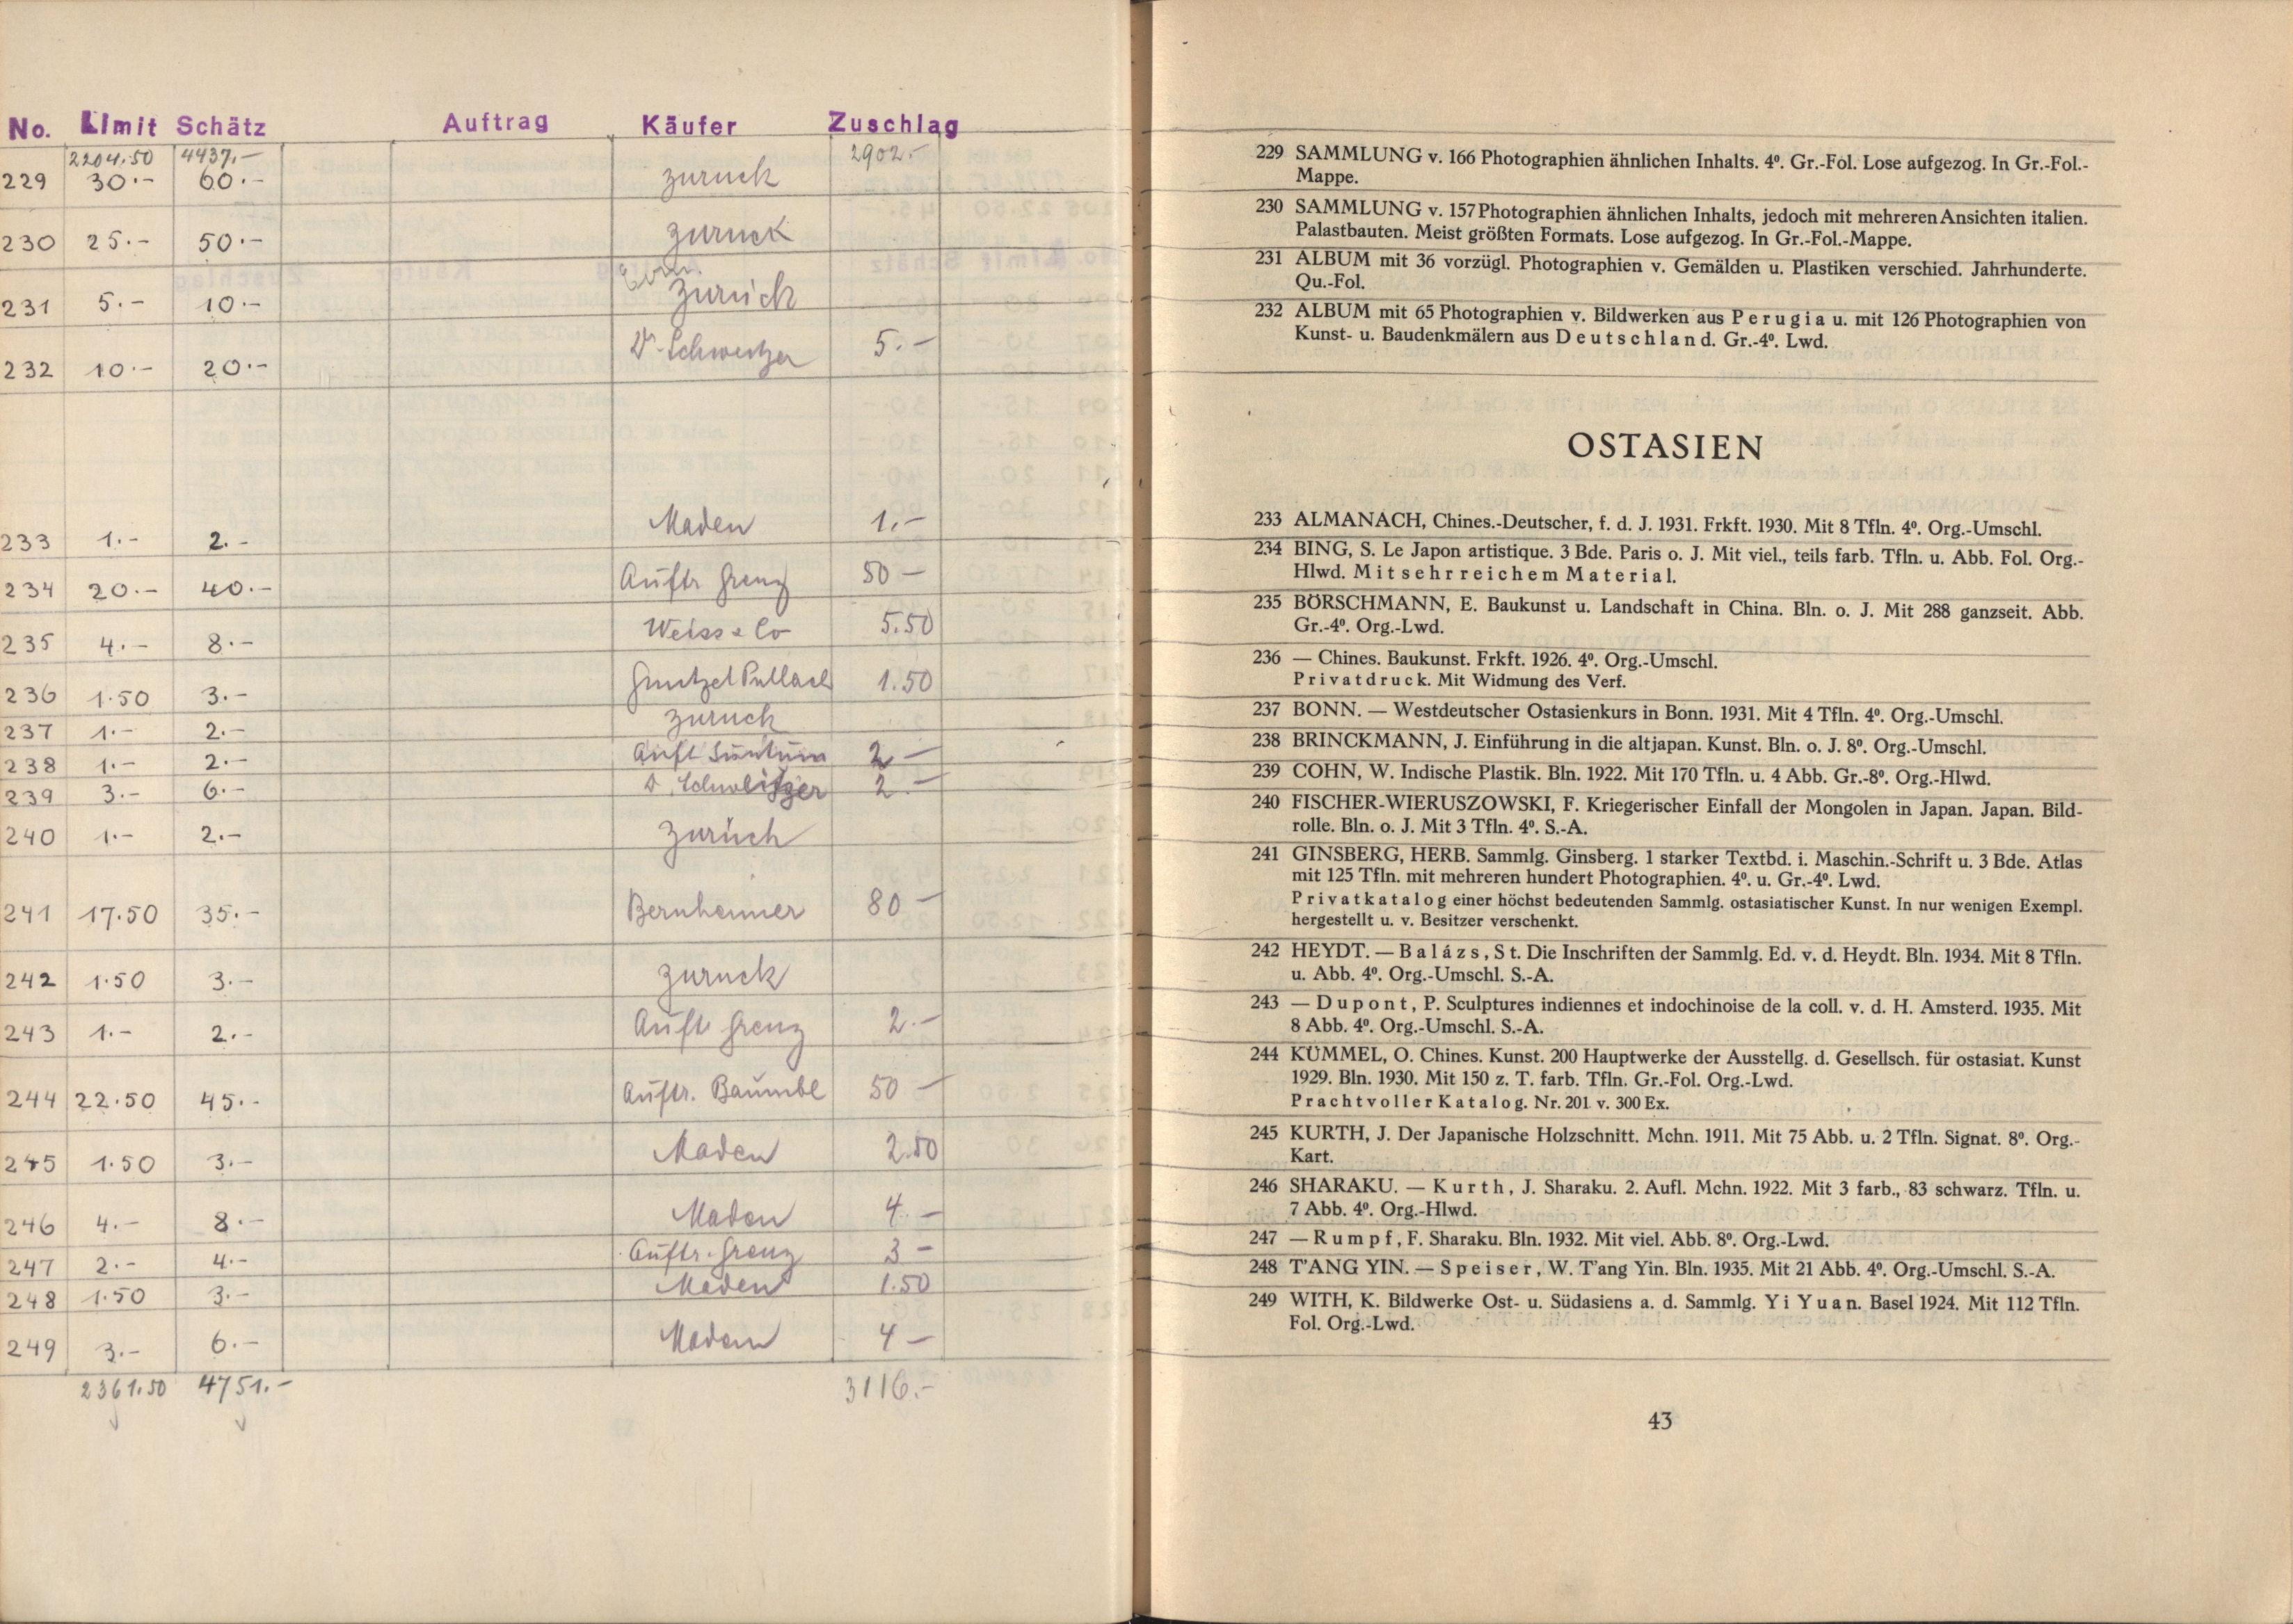 No. Limit Schätz Auftrag Käufer Zuschlag
2204.50 4437.- 2902.-
229 30.- 60.- zurück
230 25.- 50.- zurück
231 5.- 10.- zurück
232 10.- 20.- Dr. Schweitzer 5.-
233 1.- 2.- Maden 1.-
234 20.- 40.- Auftr Grenz 50 -
235 4.- 8.- Weiss & Co 5.50
236 1.50 3.- Pullach 1.50
237 1.- 2.- zurück
238 1.- 2.- Auft 2.-
239 3.- 6.- D. 2.-
240 1.- 2.- zurück
241 17.50 35.- Bernheimer 80 -
242 1.50 3.- zurück
243 1.- 2.- Auftr Grenz 2.-
244 22.50 45.- Auftr. 50 -
245 1.50 3.- Maden 2.50
246 4.- 8.- Maden 4.-
247 2.- 4.- Auftr. Grenz 3 -
248 1.50 3.- Maden 1.50
249 3.- 6.- Maden 4 -
2361.50 4751.- 3116.-
229 SAMMLUNG v. 166 Photographien ähnlichen Inhalts. 4⁰. Gr.-Fol. Lose aufgezog. In Gr.-Fol.-
Mappe.
230 SAMMLUNG v. 157 Photographien ähnlichen Inhalts, jedoch mit mehreren Ansichten italien.
Palastbauten. Meist größten Formats. Lose aufgezog. In Gr.-Fol.-Mappe.
231 ALBUM mit 36 vorzügl. Photographien v. Gemälden u. Plastiken verschied. Jahrhunderte.
Qu.-Fol.
232 ALBUM mit 65 Photographien v. Bildwerken aus Perugia u. mit 126 Photographien von
Kunst- u. Baudenkmälern aus Deutschland. Gr.-4⁰. Lwd.
OSTASIEN
233 ALMANACH, Chines.-Deutscher, f. d. J. 1931. Frkft. 1930. Mit 8 Tfln. 4⁰. Org.-Umschl.
234 BING, S. Le Japon artistique. 3 Bde. Paris o. J. Mit viel., teils farb. Tfln. u. Abb. Fol. Org.-
Hlwd. Mit sehr reichem Material.
235 BÖRSCHMANN, E. Baukunst u. Landschaft in China. Bln. o. J. Mit 288 ganzseit. Abb.
Gr.-4⁰. Org.-Lwd.
236 — Chines. Baukunst. Frkft. 1926. 4⁰. Org.-Umschl.
Privatdruck. Mit Widmung des Verf.
237 BONN. — Westdeutscher Ostasienkurs in Bonn. 1931. Mit 4 Tfln. 4⁰. Org.-Umschl.
238 BRINCKMANN, J. Einführung in die altjapan. Kunst. Bln. o. J. 8⁰. Org.-Umschl.
239 COHN, W. Indische Plastik. Bln. 1922. Mit 170 Tfln. u. 4 Abb. Gr.-8⁰. Org.-Hlwd.
240 FISCHER-WIERUSZOWSKI, F. Kriegerischer Einfall der Mongolen in Japan. Japan. Bild-
rolle. Bln. o. J. Mit 3 Tfln. 4⁰. S.-A.
241 GINSBERG, HERB. Sammlg. Ginsberg. 1 starker Textbd. i. Maschin.-Schrift u. 3 Bde. Atlas
mit 125 Tfln. mit mehreren hundert Photographien. 4⁰. u. Gr.-4⁰. Lwd.
Privatkatalog einer höchst bedeutenden Sammlg. ostasiatischer Kunst. In nur wenigen Exempl.
hergestellt u. v. Besitzer verschenkt.
242 HEYDT. — Balázs, St. Die Inschriften der Sammlg. Ed. v. d. Heydt. Bln. 1934. Mit 8 Tfln.
u. Abb. 4⁰. Org.-Umschl. S.-A.
243 — Dupont, P. Sculptures indiennes et indochinoise de la coll. v. d. H. Amsterd. 1935. Mit
8 Abb. 4⁰. Org.-Umschl. S.-A.
244 KÜMMEL, O. Chines. Kunst. 200 Hauptwerke der Ausstellg. d. Gesellsch. für ostasiat. Kunst
1929. Bln. 1930. Mit 150 z. T. farb. Tfln. Gr.-Fol. Org.-Lwd.
Prachtvoller Katalog. Nr. 201 v. 300 Ex.
245 KURTH, J. Der Japanische Holzschnitt. Mchn. 1911. Mit 75 Abb. u. 2 Tfln. Signat. 8⁰. Org.-
Kart.
246 SHARAKU. — Kurth, J. Sharaku. 2. Aufl. Mchn. 1922. Mit 3 farb., 83 schwarz. Tfln. u.
7 Abb. 4⁰. Org.-Hlwd.
247 — Rumpf, F. Sharaku. Bln. 1932. Mit viel. Abb. 8⁰. Org.-Lwd.
248 T'ANG YIN. — Speiser, W. T'ang Yin. Bln. 1935. Mit 21 Abb. 4⁰. Org.-Umschl. S.-A.
249 WITH, K. Bildwerke Ost- u. Südasiens a. d. Sammlg. Yi Yuan. Basel 1924. Mit 112 Tfln.
Fol. Org.-Lwd.
43